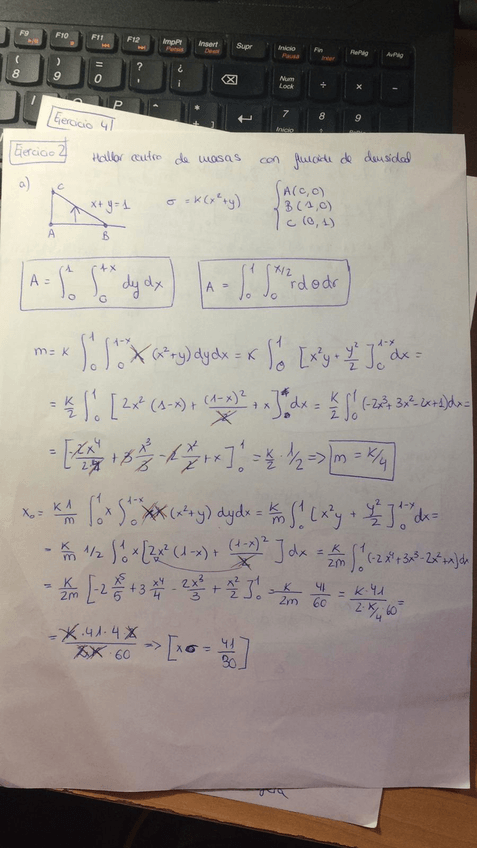 F9 F10 F11 F12 ImpPt Petsis Insert Desp Supr Inicio Pausa Fin Inter RePág AvPág
( 8 ) 9 = 0 ? ' ¿ ¡ Num Lock ÷ × −
O P * + 7 8 9
Inicio
Ejercicio 4
Ejercicio 2 Hallar centro de masas con función de densidad
a) C x+y=1 σ = K(x²+y) { A(0,0)
B(1,0)
A B C(0,1)
A = ∫₀¹ ∫₀^{1-x} dy dx A = ∫₀¹ ∫₀^{π/2} r dθ dr
m = K ∫₀¹ ∫₀^{1-x} (x²+y) dy dx = K ∫₀¹ [x²y + y²/2]₀^{1-x} dx =
= K/2 ∫₀¹ [2x² (1-x) + (1-x)²/2 + x] dx = K/2 ∫₀¹ (-2x³+3x²-2x+1) dx =
= [-2x⁴/4 + 3 x³/3 - 2 x²/2 + x]₀¹ = K/2 · 1/2 => m = K/4
x₀ = K1/m ∫₀¹ x ∫₀^{1-x} (x²+y) dy dx = K/m ∫₀¹ [x²y + y²/2]₀^{1-x} dx =
= K/m 1/2 ∫₀¹ x [2x² (1-x) + (1-x)²/2] dx = K/2m ∫₀¹ (-2x⁴+3x³-2x²+x) dx
= K/2m [-2 x⁵/5 + 3 x⁴/4 - 2x³/3 + x²/2]₀¹ = K/2m 41/60 = K·41/2·K/4·60 =
= K·41·4·2/60 => [x₀ = 41/30]